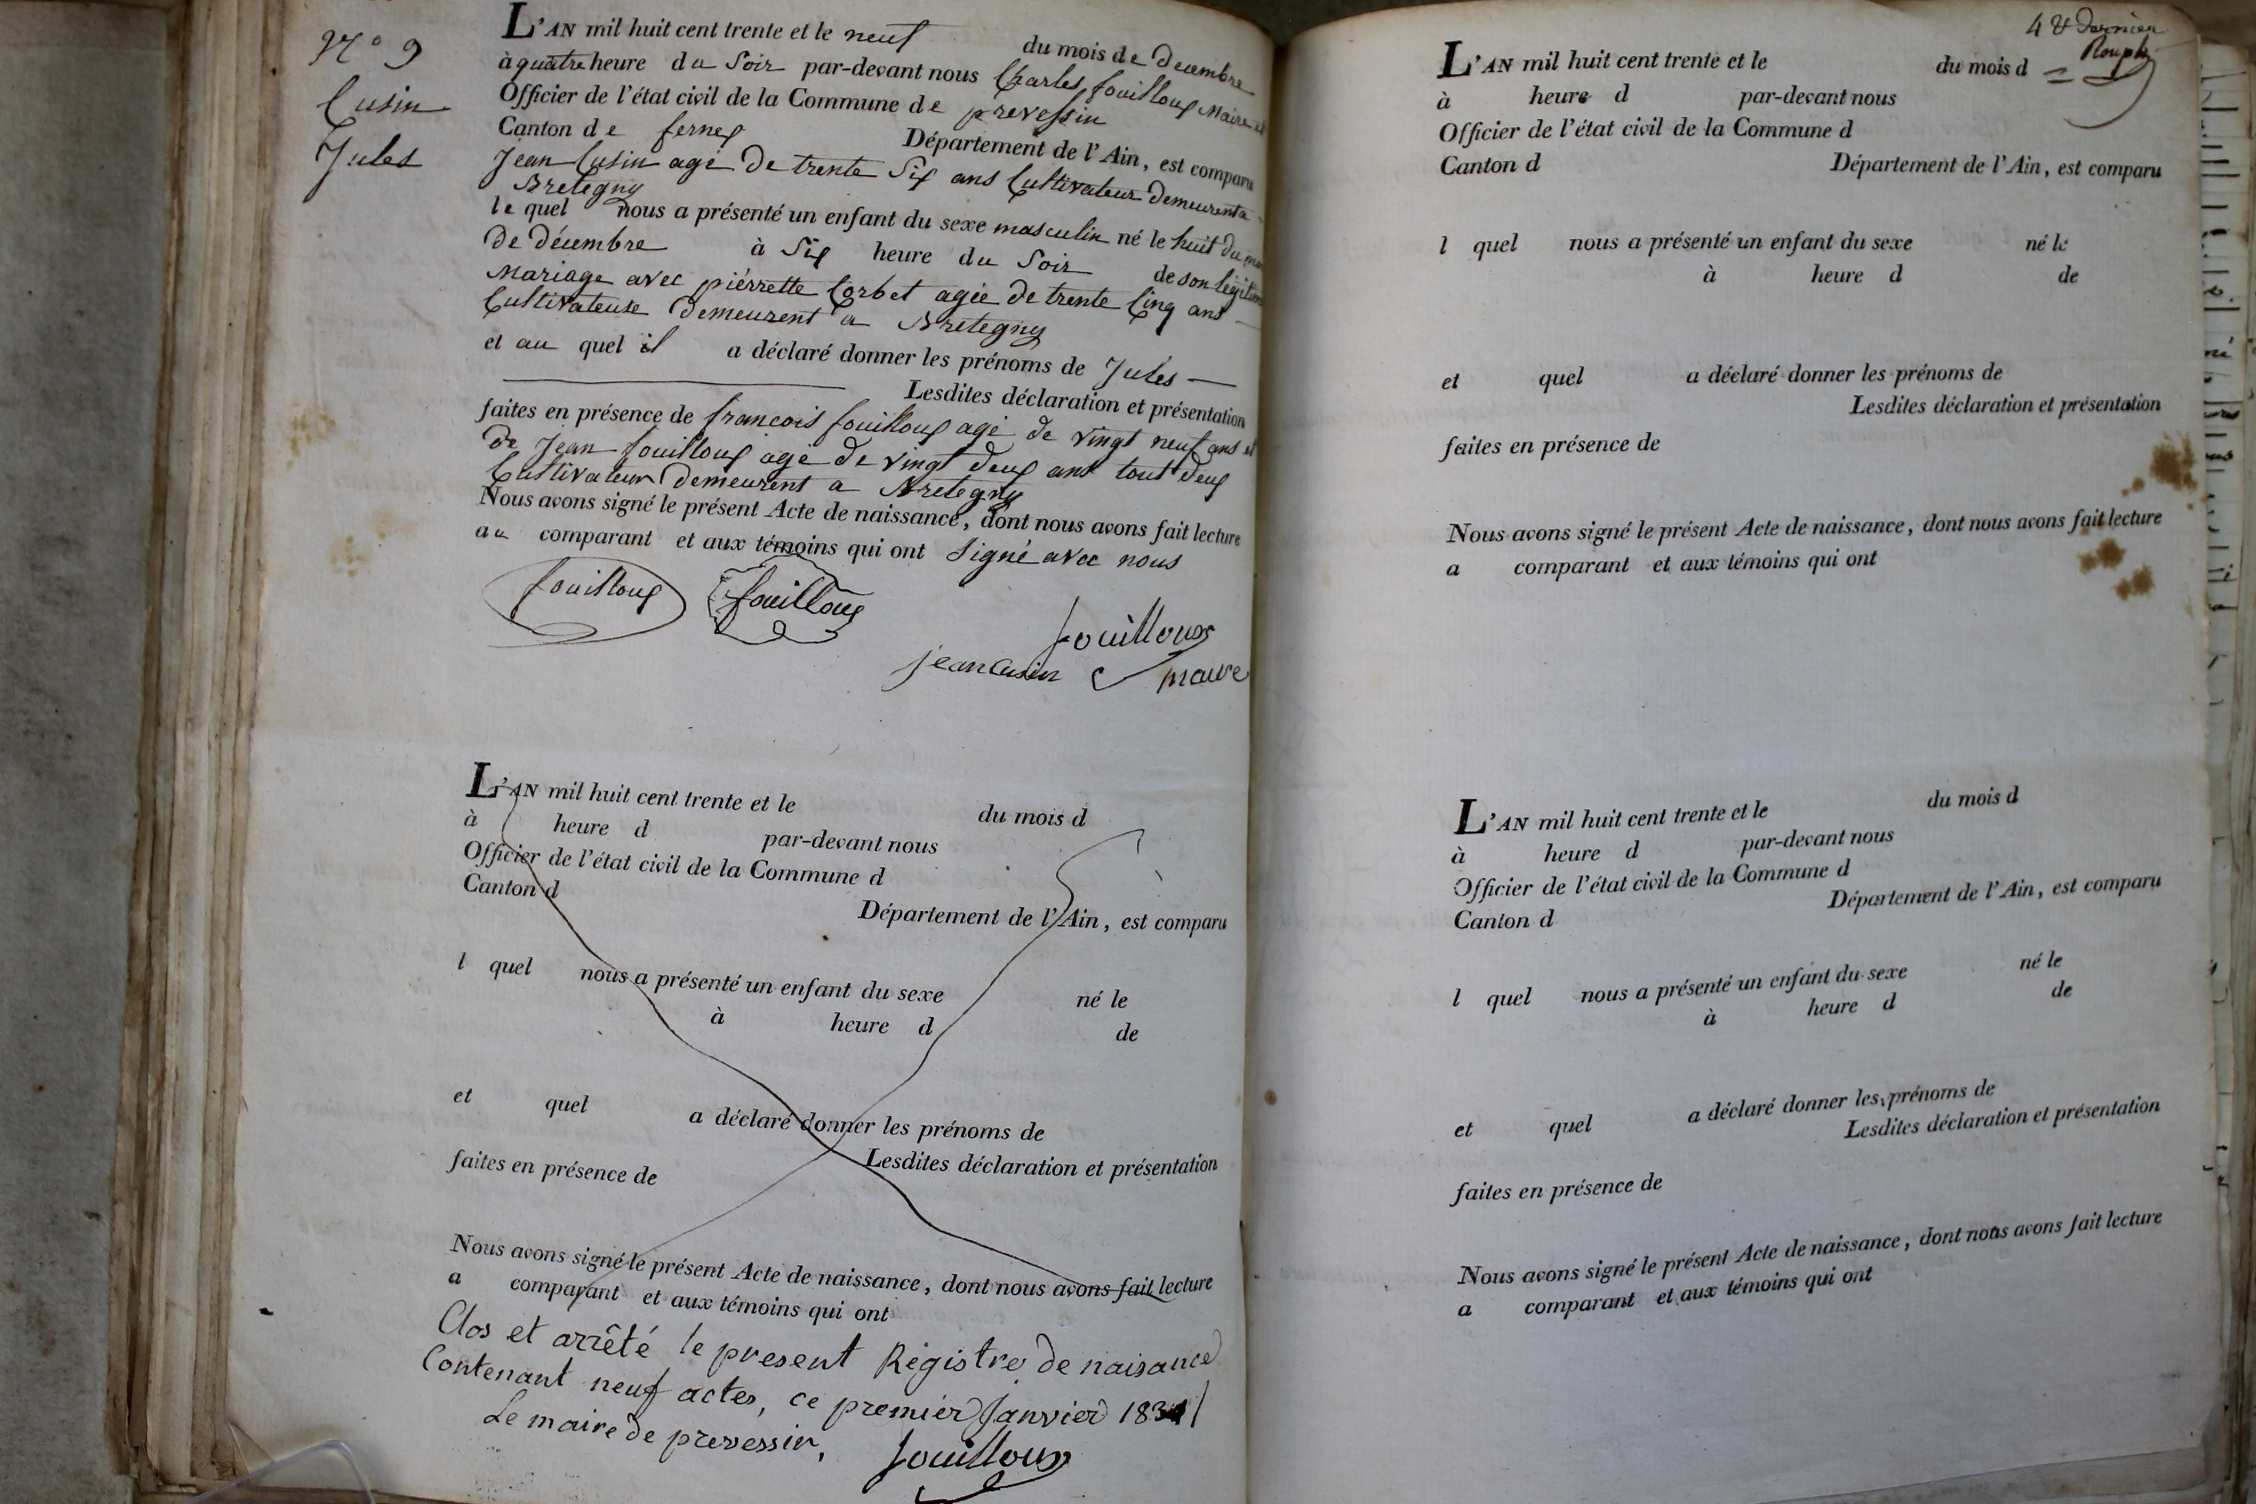 N° 9
Cusin
Jules
L'AN mil huit cent trente et le neuf du mois de decembre
à quatre heure du Soir par-devant nous Charles fouilloux Maire et
Officier de l'état civil de la Commune de prevessin
Canton de ferney Département de l'Ain, est comparu
Jean Cusin agé de trente Six ans Cultivateur demeurent a
Bretegny
le quel nous a présenté un enfant du sexe masculin né le huit du moi
de décembre à Six heure du Soir de son légitime
Mariage avec piérrette Corbet agée de trente Cinq ans
Cultivateuse demeurent a Bretegny
et au quel il a déclaré donner les prénoms de Jules
Lesdites déclaration et présentation
faites en présence de francois fouilloux agé de vingt neuf ans et
de Jean fouilloux agé de vingt deux ans tout deux
Cultivateur demeurent a Bretegny
Nous avons signé le présent Acte de naissance, dont nous avons fait lecture
au comparant et aux témoins qui ont Signé avec nous
fouilloux fouilloux
fouilloux
jean Cusin maire
L'AN mil huit cent trente et le du mois d
à heure d par-devant nous
Officier de l'état civil de la Commune d
Canton d Département de l'Ain, est comparu
l quel nous a présenté un enfant du sexe né le
à heure d de
et quel a déclaré donner les prénoms de
Lesdites déclaration et présentation
faites en présence de
Nous avons signé le présent Acte de naissance, dont nous avons fait lecture
a comparant et aux témoins qui ont
Clos et arrêté le present Régistre de naisance
Contenant neuf actes, ce premier Janvier 1831
Le maire de prevessin,
fouilloux
4 & dernier
L'AN mil huit cent trente et le du mois d
à heure d par-devant nous
Officier de l'état civil de la Commune d
Canton d Département de l'Ain, est comparu
l quel nous a présenté un enfant du sexe né le
à heure d de
et quel a déclaré donner les prénoms de
Lesdites déclaration et présentation
faites en présence de
Nous avons signé le présent Acte de naissance, dont nous avons fait lecture
a comparant et aux témoins qui ont
L'AN mil huit cent trente et le du mois d
à heure d par-devant nous
Officier de l'état civil de la Commune d
Canton d Département de l'Ain, est comparu
l quel nous a présenté un enfant du sexe né le
à heure d de
et quel a déclaré donner les prénoms de
Lesdites déclaration et présentation
faites en présence de
Nous avons signé le présent Acte de naissance, dont nous avons fait lecture
a comparant et aux témoins qui ont